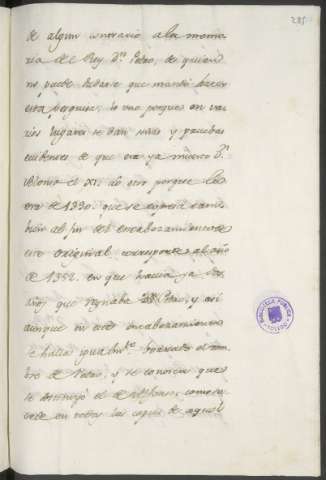 285
de algun contrario a la memo-
ria de el Rey Dn. Pedro, de quien
no puede dudarse que mandó hacer
esta pesquisa; lo uno porque en va-
rios lugares se dan señas y pruebas
evidentes de que era ya muerto Dn.
Alonso el XI. lo otro porque la
era de 1390. que se expresa tam-
bien al fin del encabezamiento de
este original corresponde al año
de 1352. en que hacía ya dos
años que reynaba Dn. Pedro, y así
aunque en este encabezamiento
se halla igualmte. borrado el nom-
bre de Pedro, y se conoce que
se substituyó el de Alfonso, como su-
cede en todas las copias de aquel
BIBLIOTECA PUBLICA
TOLEDO